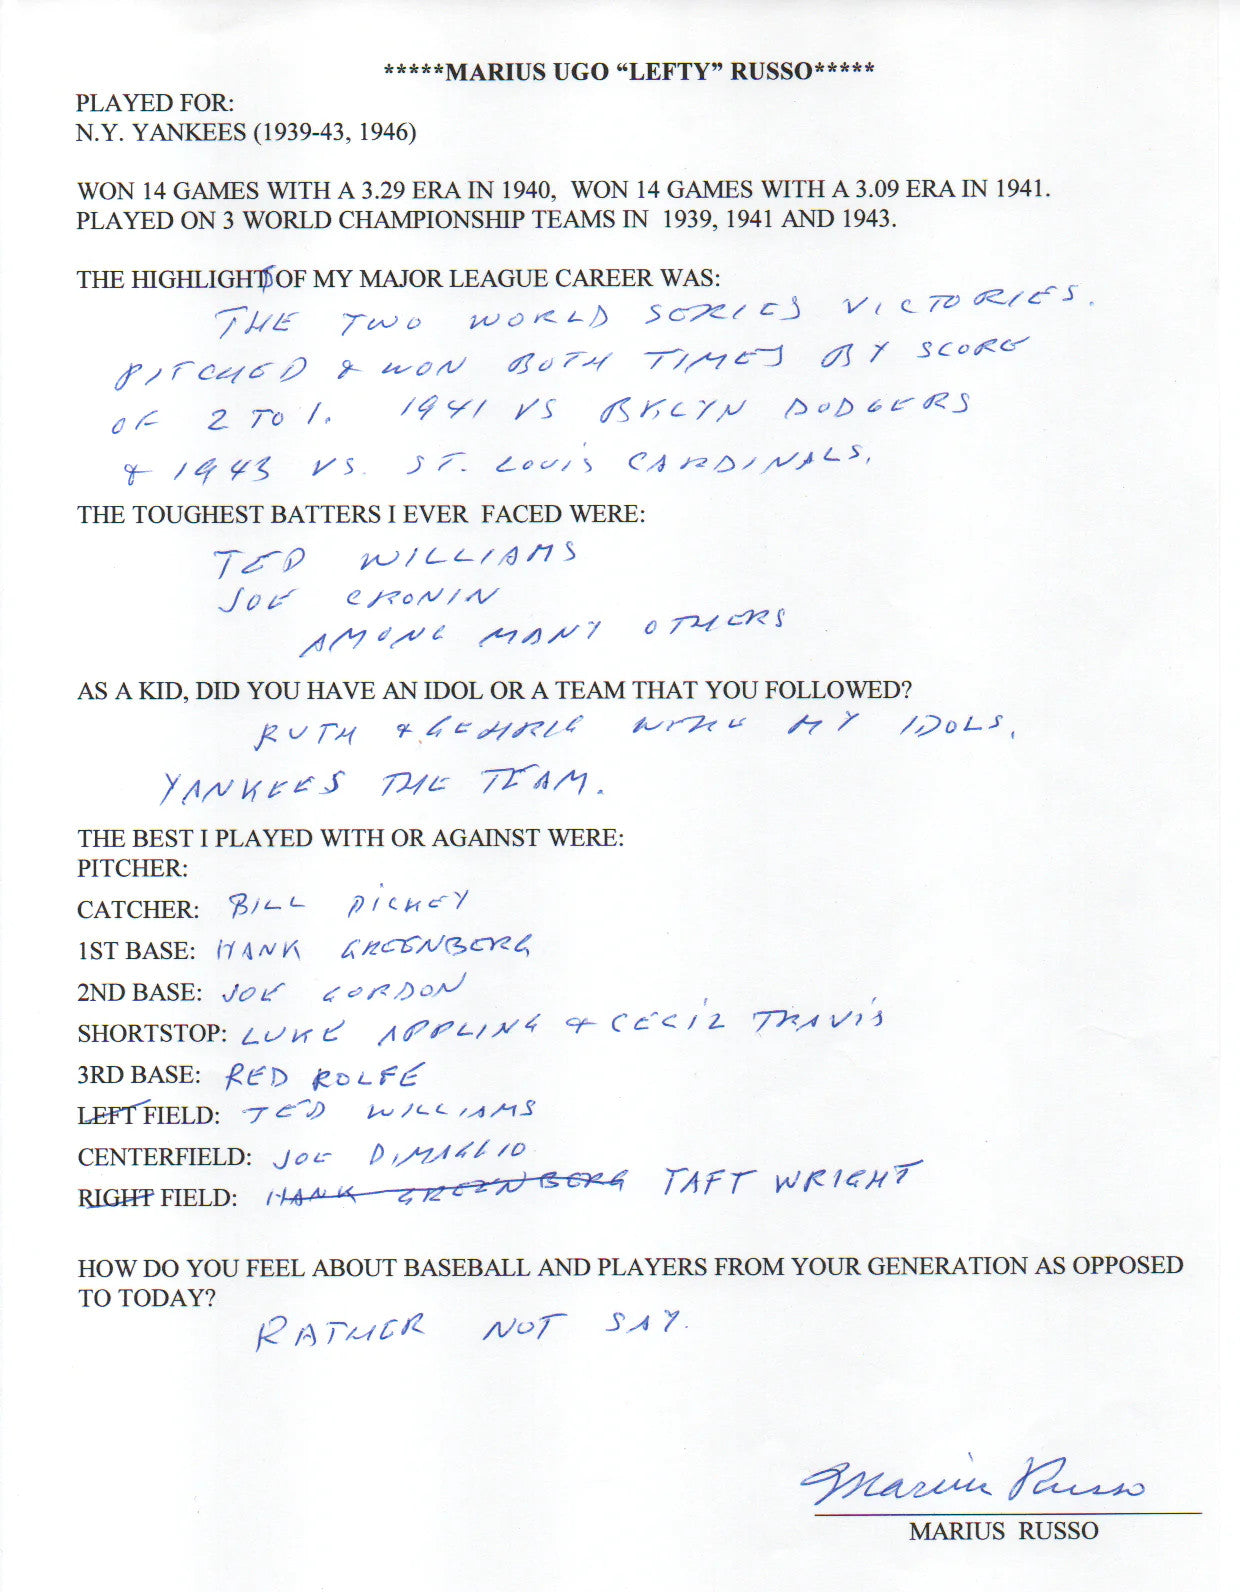 *****MARIUS UGO “LEFTY” RUSSO*****
PLAYED FOR:
N.Y. YANKEES (1939-43, 1946)
WON 14 GAMES WITH A 3.29 ERA IN 1940, WON 14 GAMES WITH A 3.09 ERA IN 1941.
PLAYED ON 3 WORLD CHAMPIONSHIP TEAMS IN 1939, 1941 AND 1943.
THE HIGHLIGHTS OF MY MAJOR LEAGUE CAREER WAS:
THE TWO WORLD SERIES VICTORIES.
PITCHED & WON BOTH TIMES BY SCORE
OF 2 TO 1. 1941 VS BKLYN DODGERS
& 1943 VS. ST. LOUIS CARDINALS.
THE TOUGHEST BATTERS I EVER FACED WERE:
TED WILLIAMS
JOE CRONIN
AMONG MANY OTHERS
AS A KID, DID YOU HAVE AN IDOL OR A TEAM THAT YOU FOLLOWED?
RUTH & GEHRIG WERE MY IDOLS.
YANKEES THE TEAM.
THE BEST I PLAYED WITH OR AGAINST WERE:
PITCHER:
CATCHER: BILL DICKEY
1ST BASE: HANK GREENBERG
2ND BASE: JOE GORDON
SHORTSTOP: LUKE APPLING & CECIL TRAVIS
3RD BASE: RED ROLFE
LEFT FIELD: TED WILLIAMS
CENTERFIELD: JOE DIMAGGIO
RIGHT FIELD: HANK GREENBERG TAFT WRIGHT
HOW DO YOU FEEL ABOUT BASEBALL AND PLAYERS FROM YOUR GENERATION AS OPPOSED
TO TODAY?
RATHER NOT SAY.
Marius Russo
MARIUS RUSSO